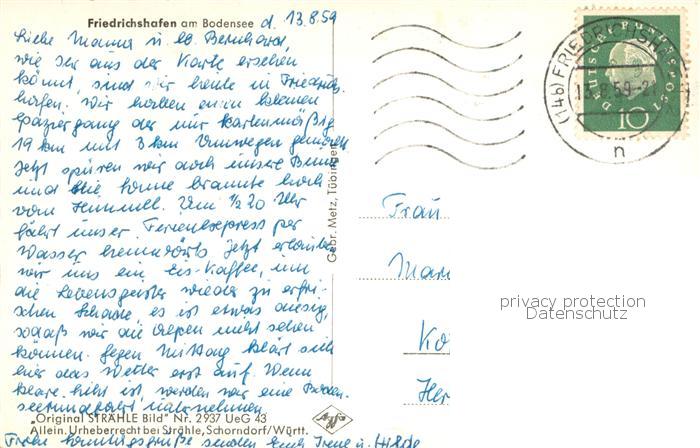 Friedrichshafen am Bodensee d. 13.8.59
Liebe Mama u. lb. Bernhard,
wie ihr aus der Karte ersehen
könnt, sind wir heute in Friedrichs-
hafen. Wir hatten einen kleinen
Spaziergang der nur kartenmäßig
19 km mit 3 km Umwegen gemacht
Jetzt spüren wir doch unsere Beine
und die Sonne brannte hoch
vom Himmel. Um 1/2 20 Uhr
fährt unser Ferienexpress per
Wasser heimwärts. Jetzt erlauben
wir uns ein Eis-Kaffee, um
die Lebensgeister wieder zu erfri-
schen. Schade, es ist etwas diesig,
sodaß wir die Alpen nicht sehen
können. Gegen Mittag klärt sich
hier das Wetter erst auf. Wenn
klare Sicht ist, werden wir eine Boden-
seerundfahrt unternehmen.
„Original STRÄHLE Bild" Nr. 2937 UeG 43
Allein. Urheberrecht bei Strähle, Schorndorf/Württ.
Frohe Sonntagsgrüße senden Euch Irene u. Hilde
Gebr. Metz, Tübingen
Agfa
DEUTSCHE BUNDESPOST
10
(14b) FRIEDRICHSHAFEN
13.8.59-21
n
Frau
Mar
Ko
Her
privacy protection
Datenschutz